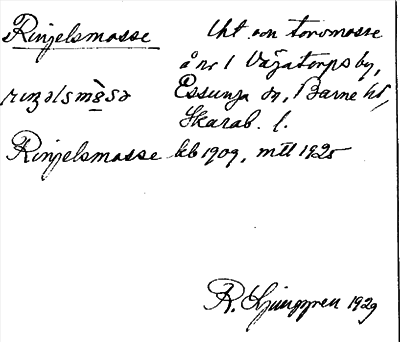 Ringelsmosse lht. om torvmosse
å nr 1 Vägatorps by,
Essunga sn, Barne hd,
Skarab. l.
Ringelsmosse kb 1909, mtl 1925
R. Ljunggren 1929